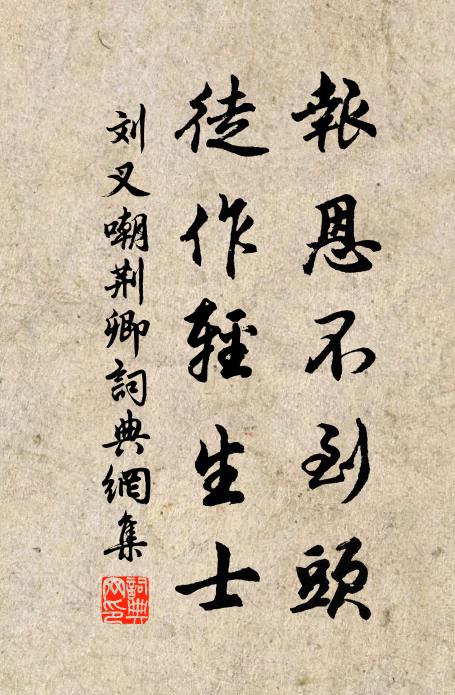 報恩不到頭
徒作輕生士
刘叉嘲荆卿詞典網集
詞典网印